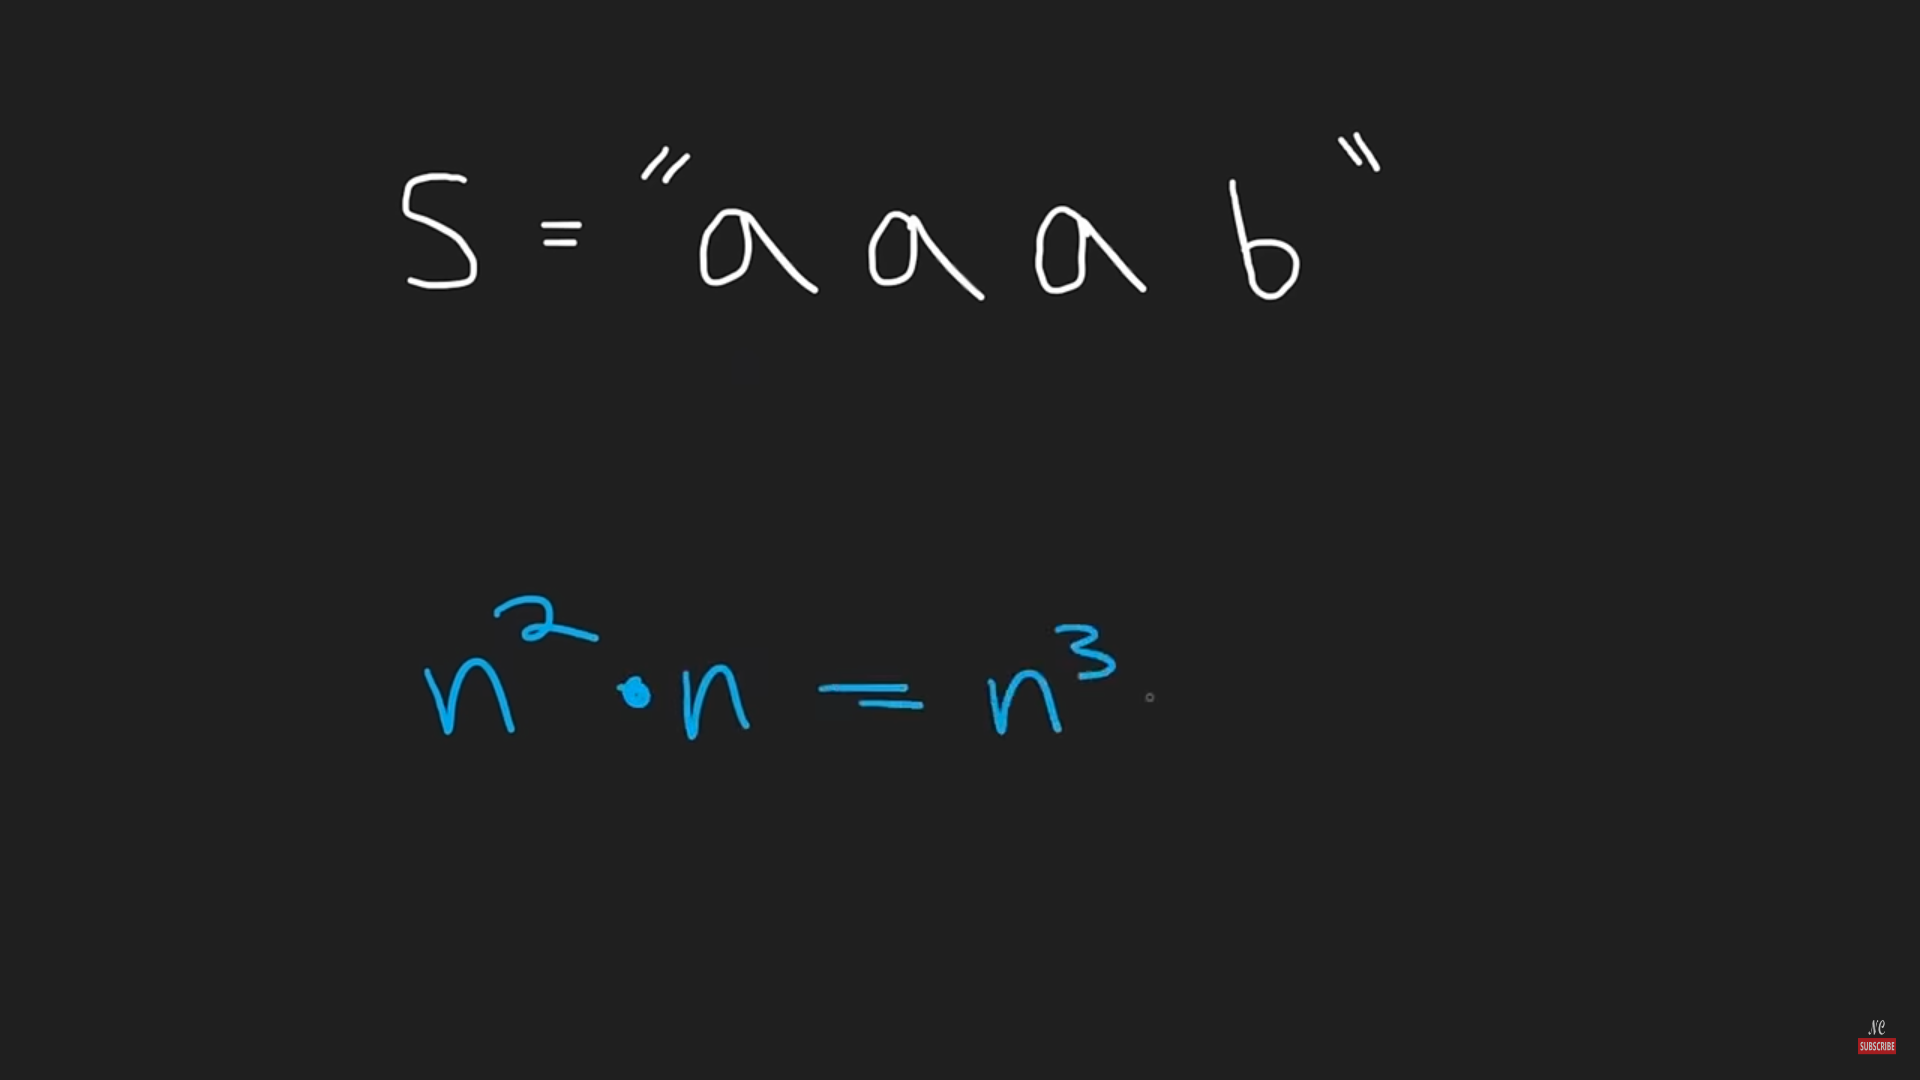 S = "a a a b"
n² • n = n³
NC
SUBSCRIBE